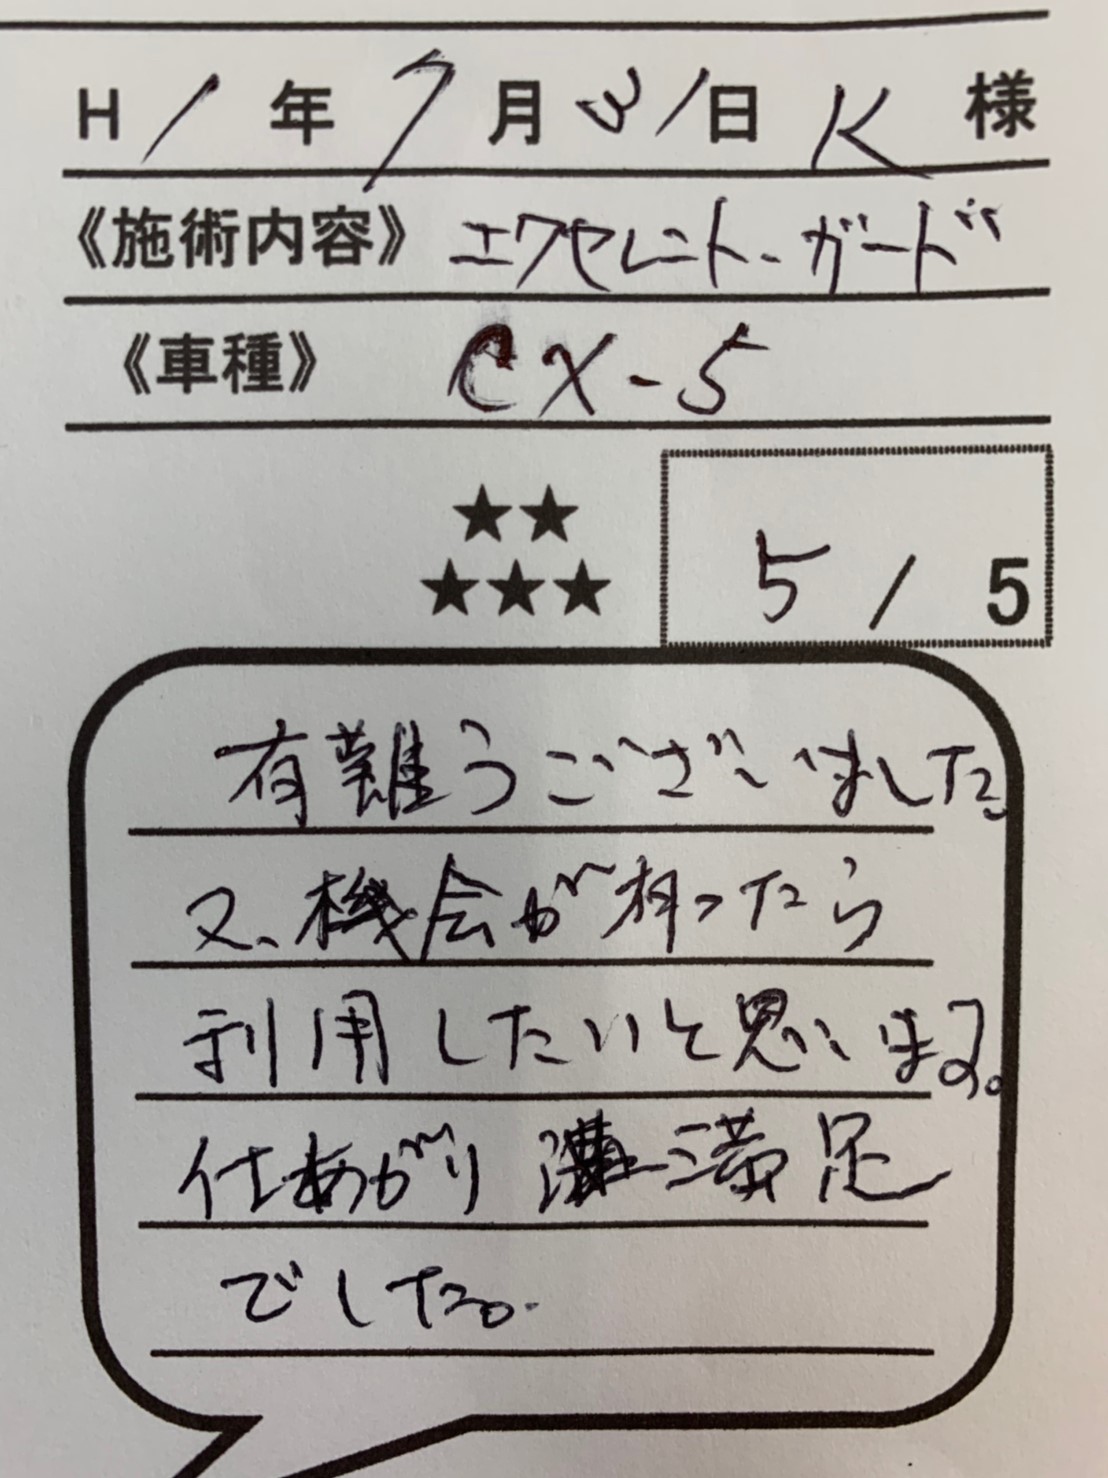 H1年7月31日 K 様
《施術内容》 エクセレント・ガード
《車種》 CX-5
★★
★★★
5/5
有難うございました。
又、機会が有ったら
利用したいと思います。
仕あがり 満足
でした。